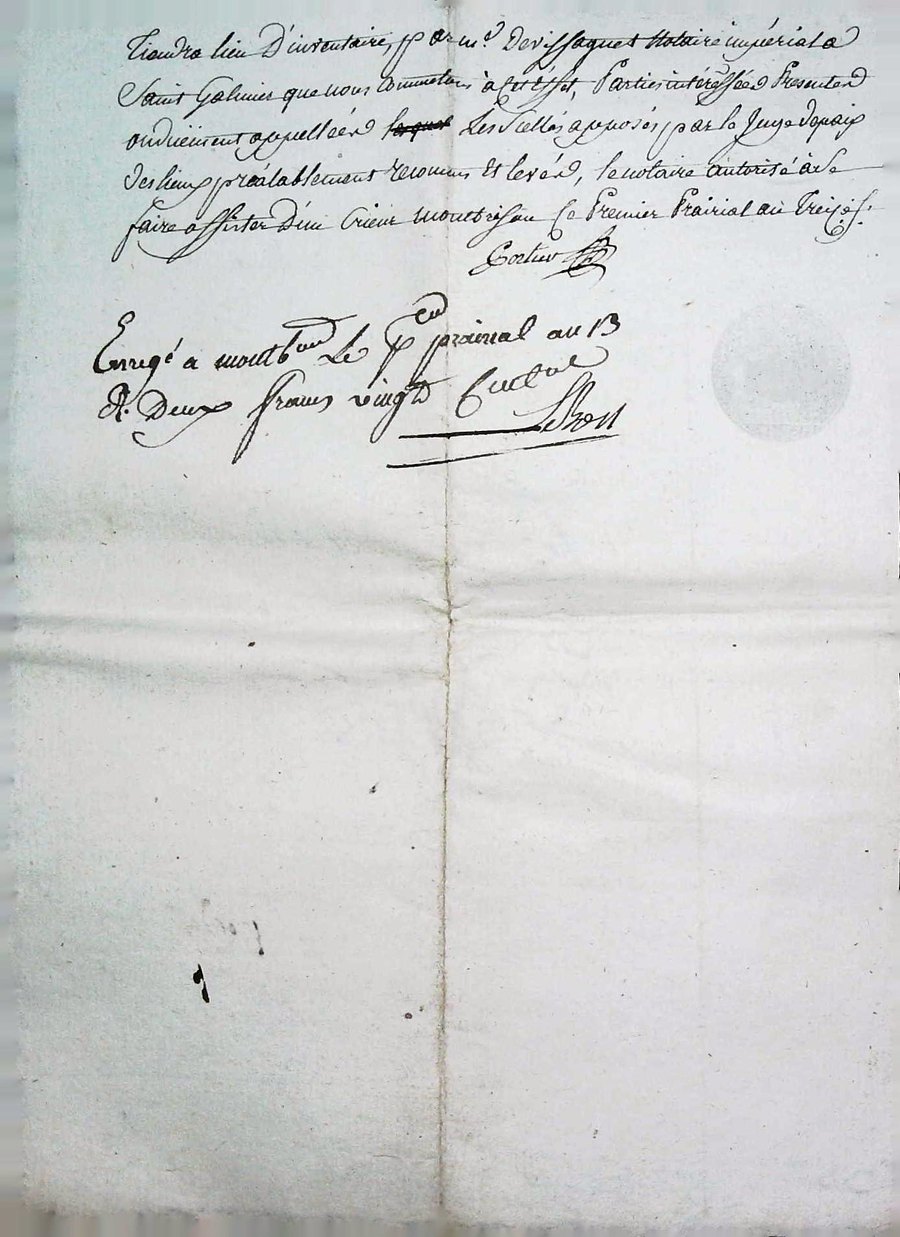 Tiendra lieu D'inventaire, par me. Devissaguet Notaire impérial a
Saint Galmier que nous Commettons à Cet éffet, Parties intéréssées Presentes
ou duëment appellées lesquel Les Scellés apposés par le Juge depaix
des lieux préalablement reconnus Et levés, le notaire autorisé à se
faire assister d'un Crieur Montbrison Ce Premier Prairial an Treize.
Portier
Enregé a montbon Le per prairial an 13
R. Deux francs vingt Cent